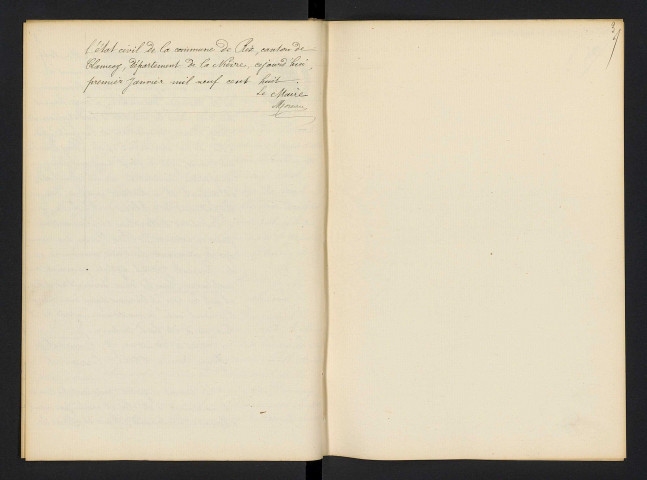 l'état civil de la commune de Rix, canton de
Clamecy, département de la Nièvre, cejourd'hui,
premier Janvier mil neuf cent huit.
Le Maire